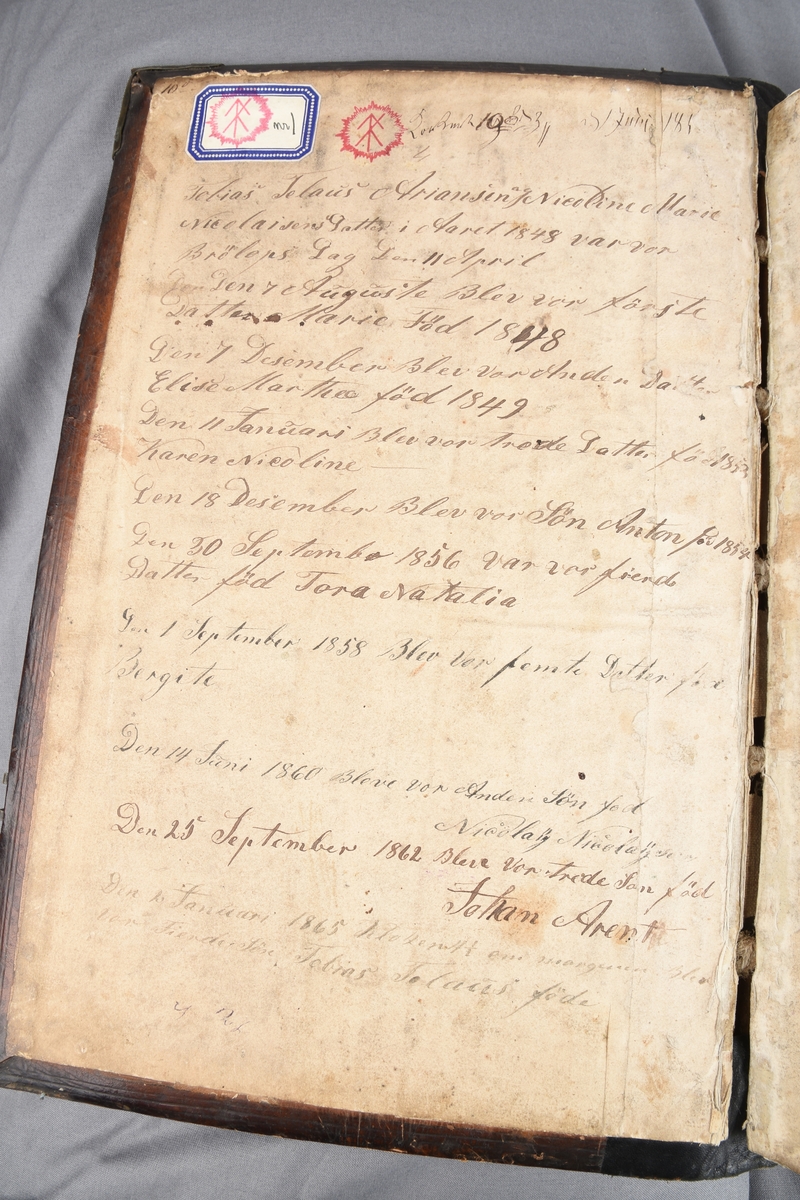 Tobias Tolaus Ariansen og Nicoline Marie
Nicolaisens Datter i Aaret 1848 var vor
Brölops Dag Den 11 April
Den 7 Auguste Blev vor förste
Datter Marie Föd 1848
Den 7 Desember Blev vor Anden Datter
Elise Marthee föd 1849
Den 11 Januari Blev vor trede Datter föd 1853
Karen Nicoline
Den 18 Desember Blev vor Sön Anton föd 1854
Den 30 September 1856 var vor fierde
Datter föd Tora Natalia
Den 1 September 1858 Blev vor femte Datter
Bergite
Den 14 Juni 1860 Bleve vor Anden Sön föd
Nicolaÿ Nicolaÿsen
Den 25 September 1862 Bleve Vor trede Sön föd
Johan Arent
Den 2 Januari 1865 Klokken om morgenen Blev
Vor Fierde Sön Tobias Tolaus föde